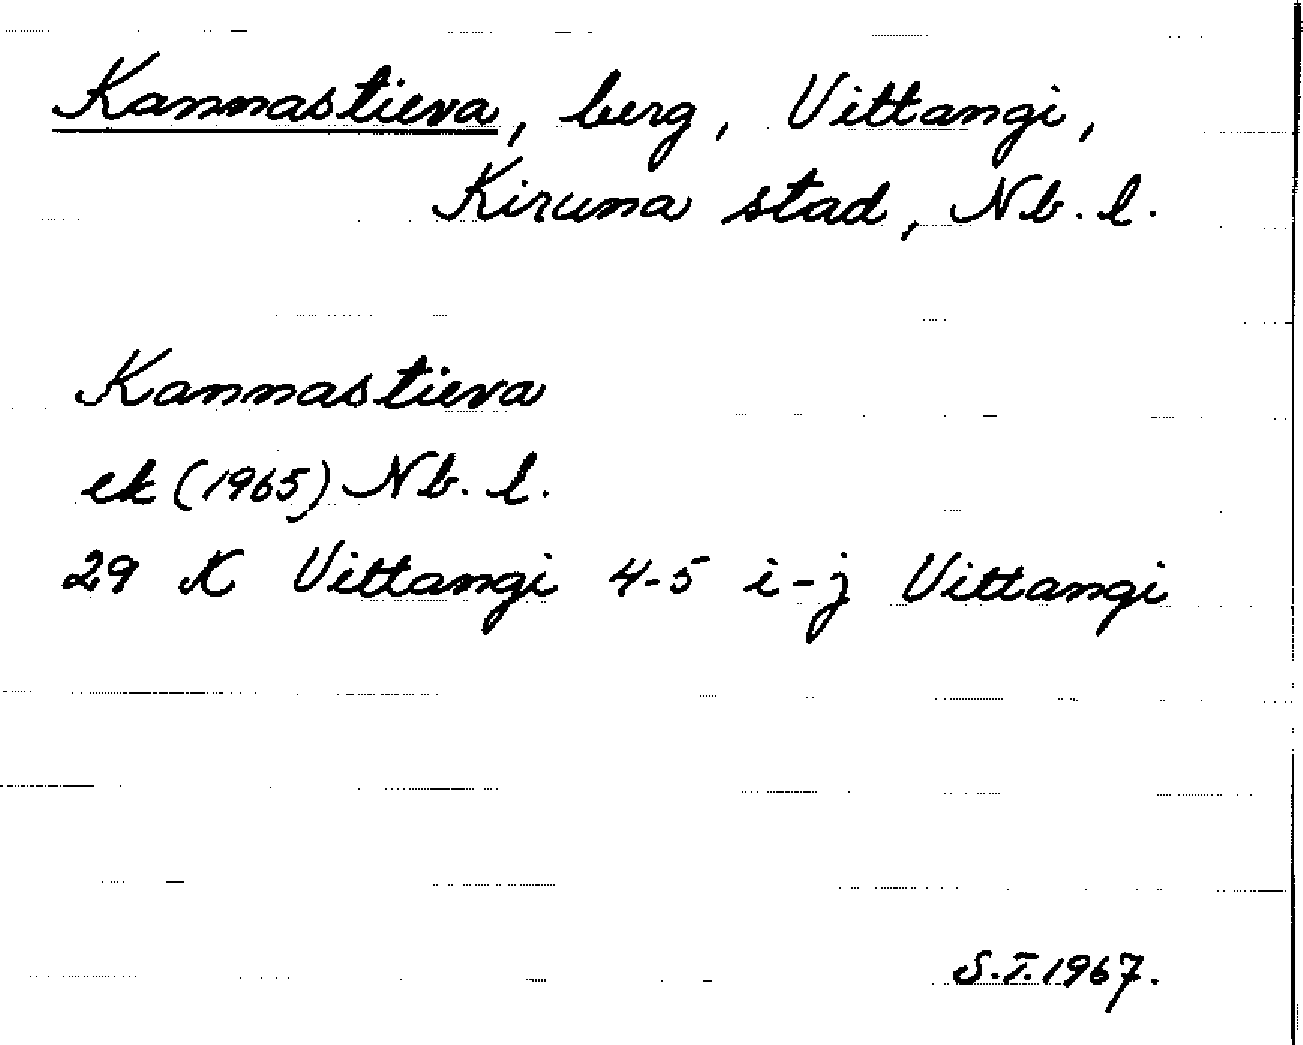 Kannastieva, berg, Vittangi,
Kiruna stad, Nb. l.
Kannastieva
ek (1965) Nb. l.
29 K Vittangi 4-5 i-j Vittangi
S.T. 1967.